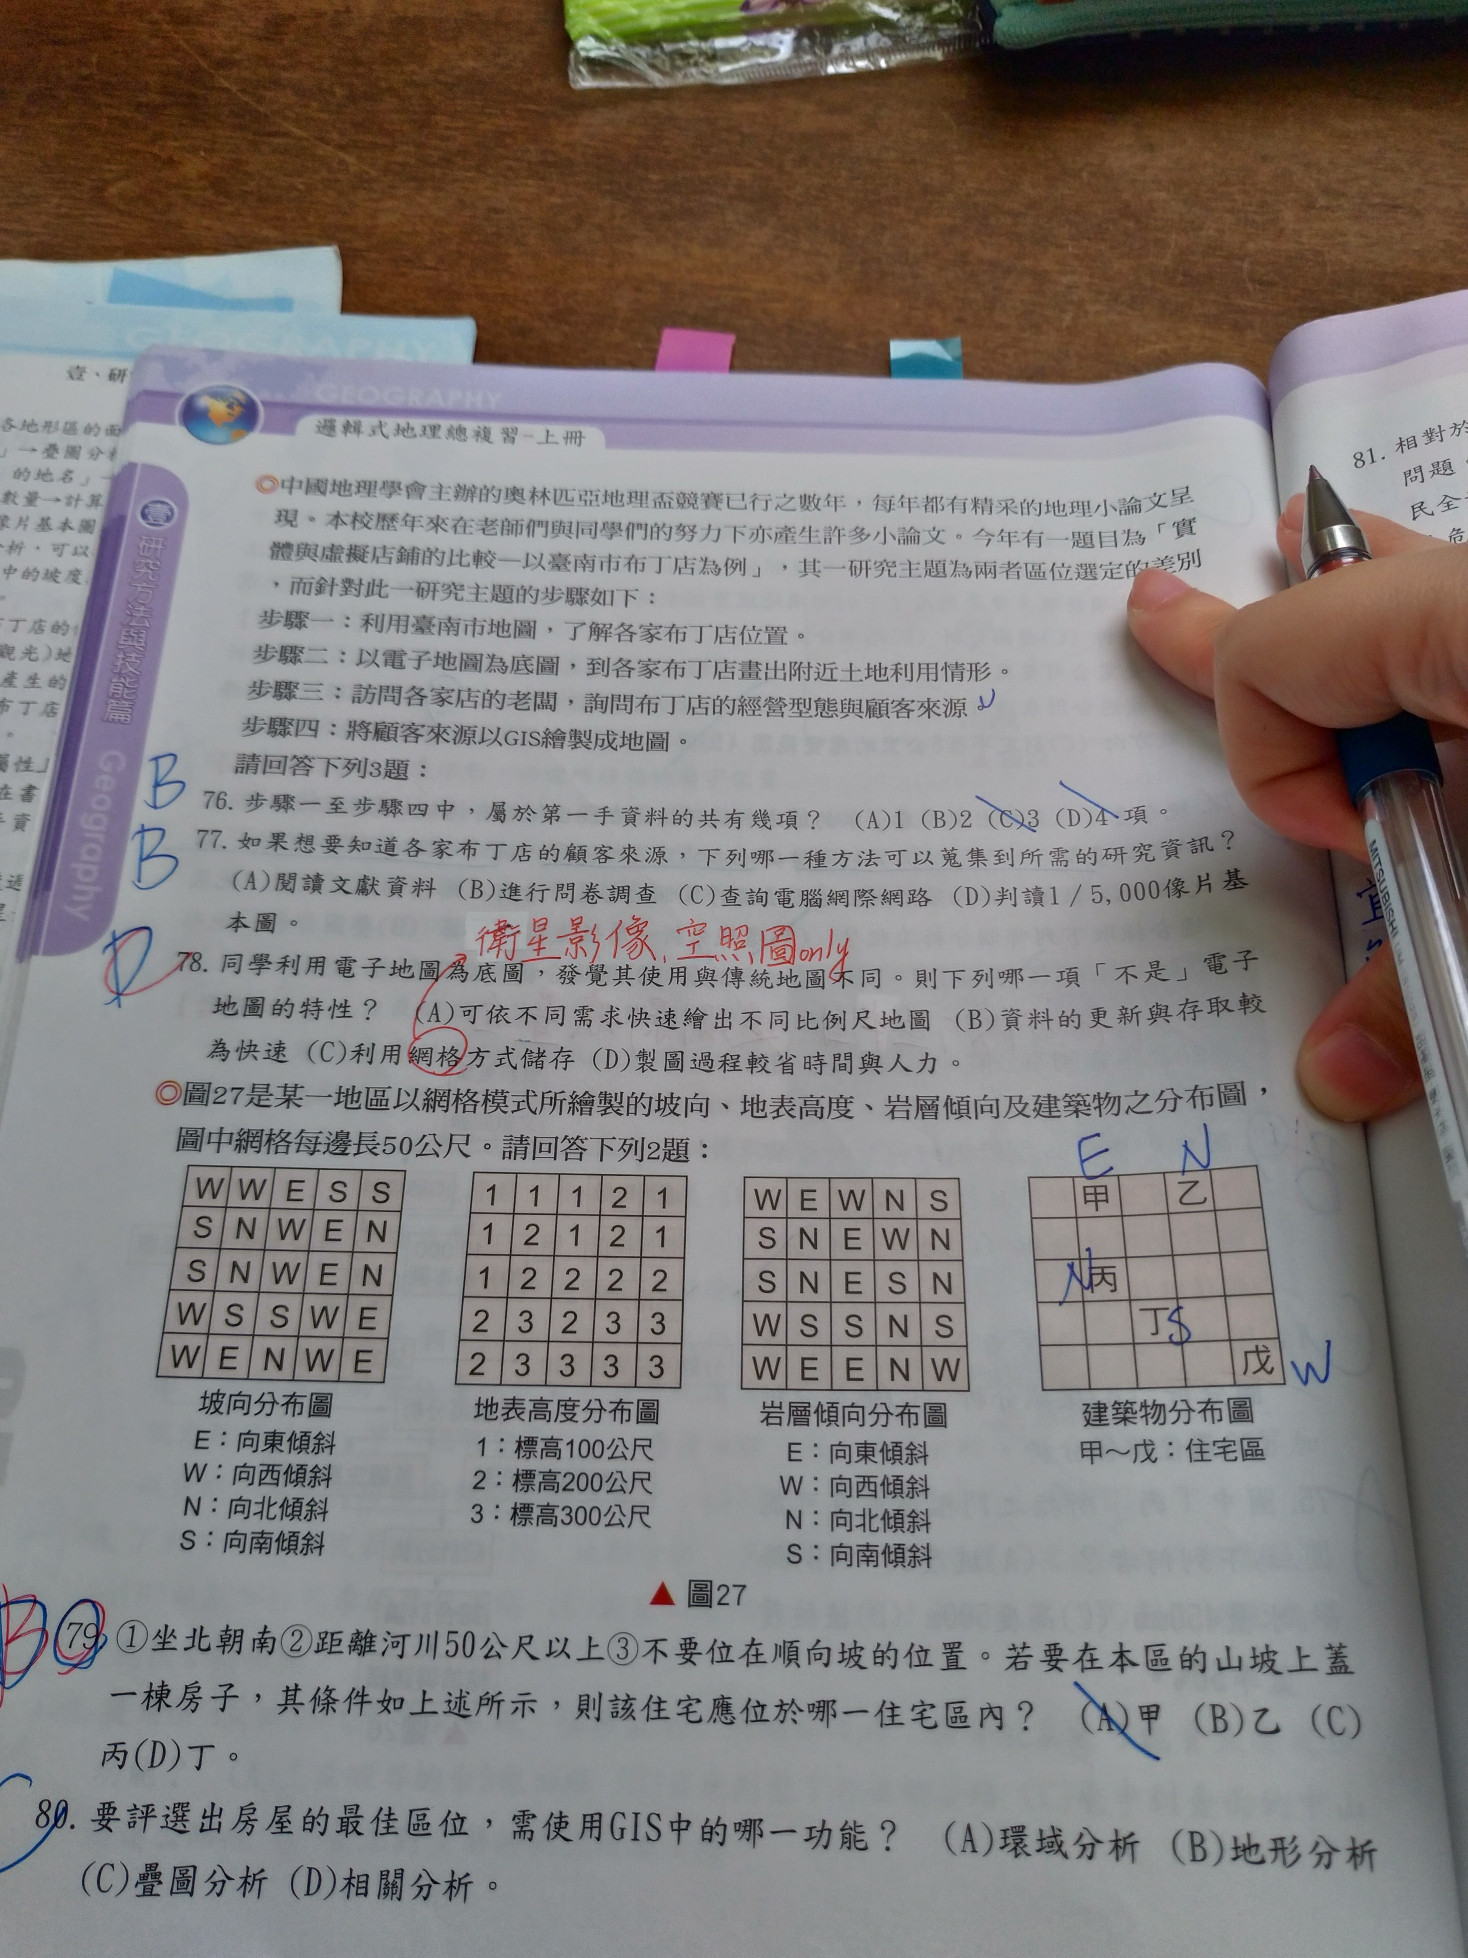 GEOGRAPHY
邏輯式地理總複習-上冊
壹、研
各地形區的面
的地名」
壹
研究方法與技能篇
Geography
◎中國地理學會主辦的奧林匹亞地理盃競賽已行之數年，每年都有精采的地理小論文呈
現。本校歷年來在老師們與同學們的努力下亦產生許多小論文。今年有一題目為「實
體與虛擬店鋪的比較—以臺南市布丁店為例」，其一研究主題為兩者區位選定的差別
，而針對此一研究主題的步驟如下：
步驟一：利用臺南市地圖，了解各家布丁店位置。
步驟二：以電子地圖為底圖，到各家布丁店畫出附近土地利用情形。
步驟三：訪問各家店的老闆，詢問布丁店的經營型態與顧客來源
步驟四：將顧客來源以GIS繪製成地圖。
請回答下列3題：
B
76. 步驟一至步驟四中，屬於第一手資料的共有幾項？ (A)1 (B)2 (C)3 (D)4 項。
B
77. 如果想要知道各家布丁店的顧客來源，下列哪一種方法可以蒐集到所需的研究資訊？
(A)閱讀文獻資料 (B)進行問卷調查 (C)查詢電腦網際網路 (D)判讀1/5,000像片基
本圖。
衛星影像、空照圖only
D
78. 同學利用電子地圖為底圖，發覺其使用與傳統地圖不同。則下列哪一項「不是」電子
地圖的特性？ (A)可依不同需求快速繪出不同比例尺地圖 (B)資料的更新與存取較
為快速 (C)利用網格方式儲存 (D)製圖過程較省時間與人力。
◎圖27是某一地區以網格模式所繪製的坡向、地表高度、岩層傾向及建築物之分布圖，
圖中網格每邊長50公尺。請回答下列2題：
E N
W W E S S
S N W E N
S N W E N
W S S W E
W E N W E
坡向分布圖
E：向東傾斜
W：向西傾斜
N：向北傾斜
S：向南傾斜
1 1 1 2 1
1 2 1 2 1
1 2 2 2 2
2 3 2 3 3
2 3 3 3 3
地表高度分布圖
1：標高100公尺
2：標高200公尺
3：標高300公尺
W E W N S
S N E W N
S N E S N
W S S N S
W E E N W
岩層傾向分布圖
E：向東傾斜
W：向西傾斜
N：向北傾斜
S：向南傾斜
甲 乙
N 丙
丁 S
戊 W
建築物分布圖
甲～戊：住宅區
▲ 圖27
B
79. ①坐北朝南②距離河川50公尺以上③不要位在順向坡的位置。若要在本區的山坡上蓋
一棟房子，其條件如上述所示，則該住宅應位於哪一住宅區內？ (A)甲 (B)乙 (C)
丙(D)丁。
80. 要評選出房屋的最佳區位，需使用GIS中的哪一功能？ (A)環域分析 (B)地形分析
(C)疊圖分析 (D)相關分析。
81. 相對於
問題
民全
危
MITSUBISHI